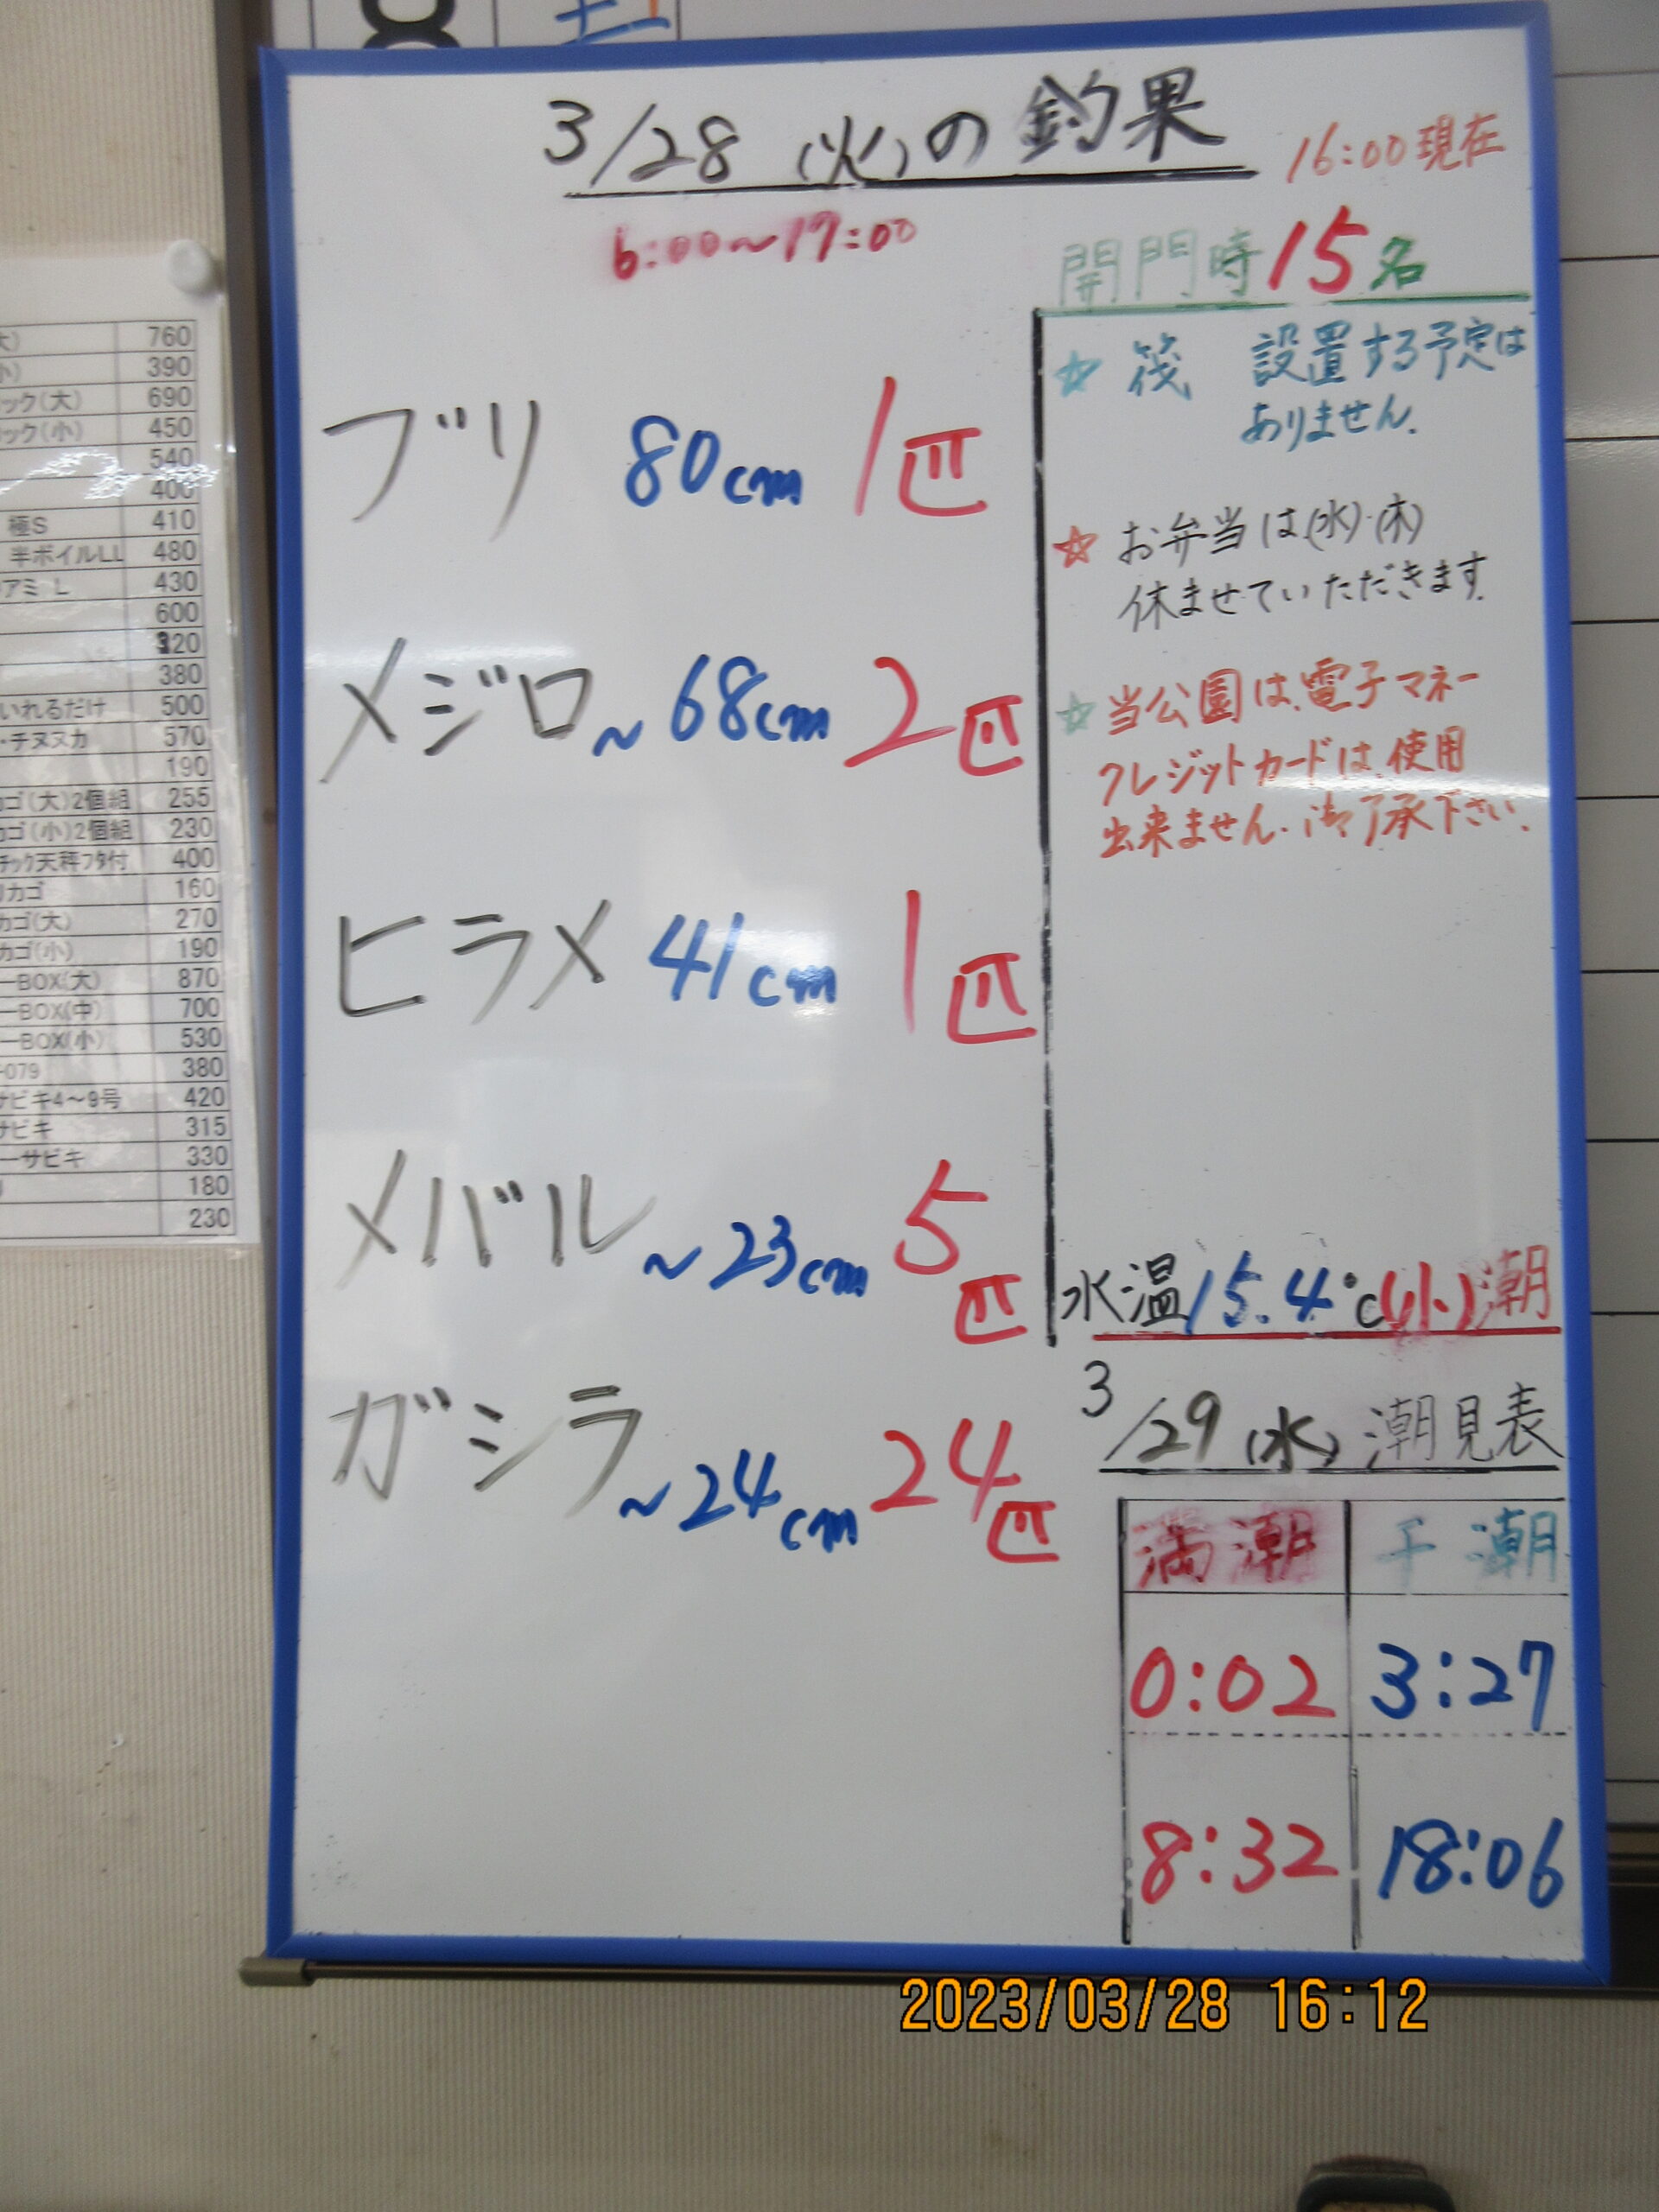 3/28(火)の釣果
16:00現在
6:00~17:00
開門時15名
ブリ 80cm 1匹
メジロ~68cm 2匹
ヒラメ 41cm 1匹
メバル~23cm 5匹
ガシラ~24cm 24匹
☆ 筏 設置する予定は
ありません.
☆ お弁当は(水)・(木)
休ませていただきます.
☆ 当公園は、電子マネー
クレジットカードは、使用
出来ません.御了承下さい.
水温15.4℃(小)潮
3/29(水)潮見表
満潮 干潮
0:02 3:27
8:32 18:06
760
390
ック(大) 690
ック(小) 450
540
400
極S 410
半ボイルLL 480
アミ L 430
600
320
380
いれるだけ 500
・チヌヌカ 570
190
カゴ(大)2個組 255
カゴ(小)2個組 230
チック天秤フタ付 400
リカゴ 160
カゴ(大) 270
カゴ(小) 190
ーBOX(大) 870
ーBOX(中) 700
ーBOX(小) 530
-079 380
サビキ4～9号 420
サビキ 315
ーサビキ 330
180
230
2023/03/28 16:12